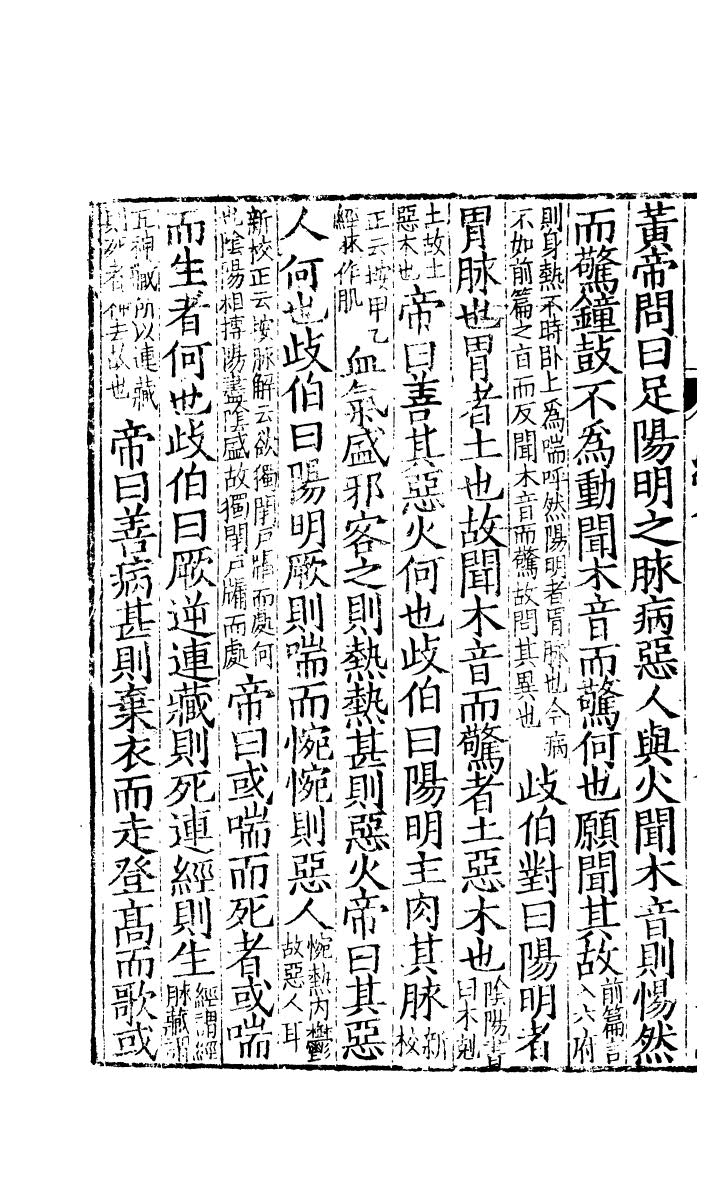 黃帝問曰足陽明之脉病惡人與火聞木音則惕然
而驚鐘鼓不爲動聞木音而驚何也願聞其故前篇言入六府
則身熱不時卧上爲喘呼然陽明者胃脉也今病不如前篇之旨而反聞木音而驚故問其異也歧伯對曰陽明者
胃脉也胃者土也故聞木音而驚者土惡木也陰陽書曰木剋
土故土惡木也帝曰善其惡火何也歧伯曰陽明主肉其脉新校
正云按甲乙經脉作肌血氣盛邪客之則熱熱甚則惡火帝曰其惡
人何也歧伯曰陽明厥則喘而惋惋則惡人惋熱內鬱故惡人耳
新校正云按脉解云欲獨閉戶牖而處何也陰陽相搏陽盡陰盛故獨閉戶牖而處帝曰或喘而死者或喘
而生者何也歧伯曰厥逆連藏則死連經則生經謂經脉藏謂
五神藏所以連藏則死者神去故也帝曰善病甚則棄衣而走登高而歌或